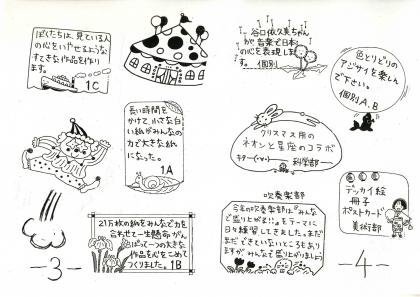 ぼくたちは、見ている人
の心をいやせるような
すてきな作品を作り
ます。
1C
長い時間を
かけて、小さな白
い紙がみんなの
力で大きな紙
になった。
1A
21万枚の紙をみんなで力を
合わせて一生懸命がん
ばって一つの大きな
作品を心をこめて
つくりました。1B
-3-
谷口依久美ちゃん
が音楽で日本
の心を表現しま
す。個別
色とりどりの
アジサイを楽しん
で下さい。
個別A、B
クリスマス用の
ネオンと星座のコラボ
科学部
吹奏楽部
今年の吹奏楽部は『みんな
で盛り上がる!!』をテーマに
日々練習してきました。まだ
まだできていないところもあり
ますがみんなで盛り上がりましょう
デッカイ絵
冊子
ポストカード
美術部
-4-